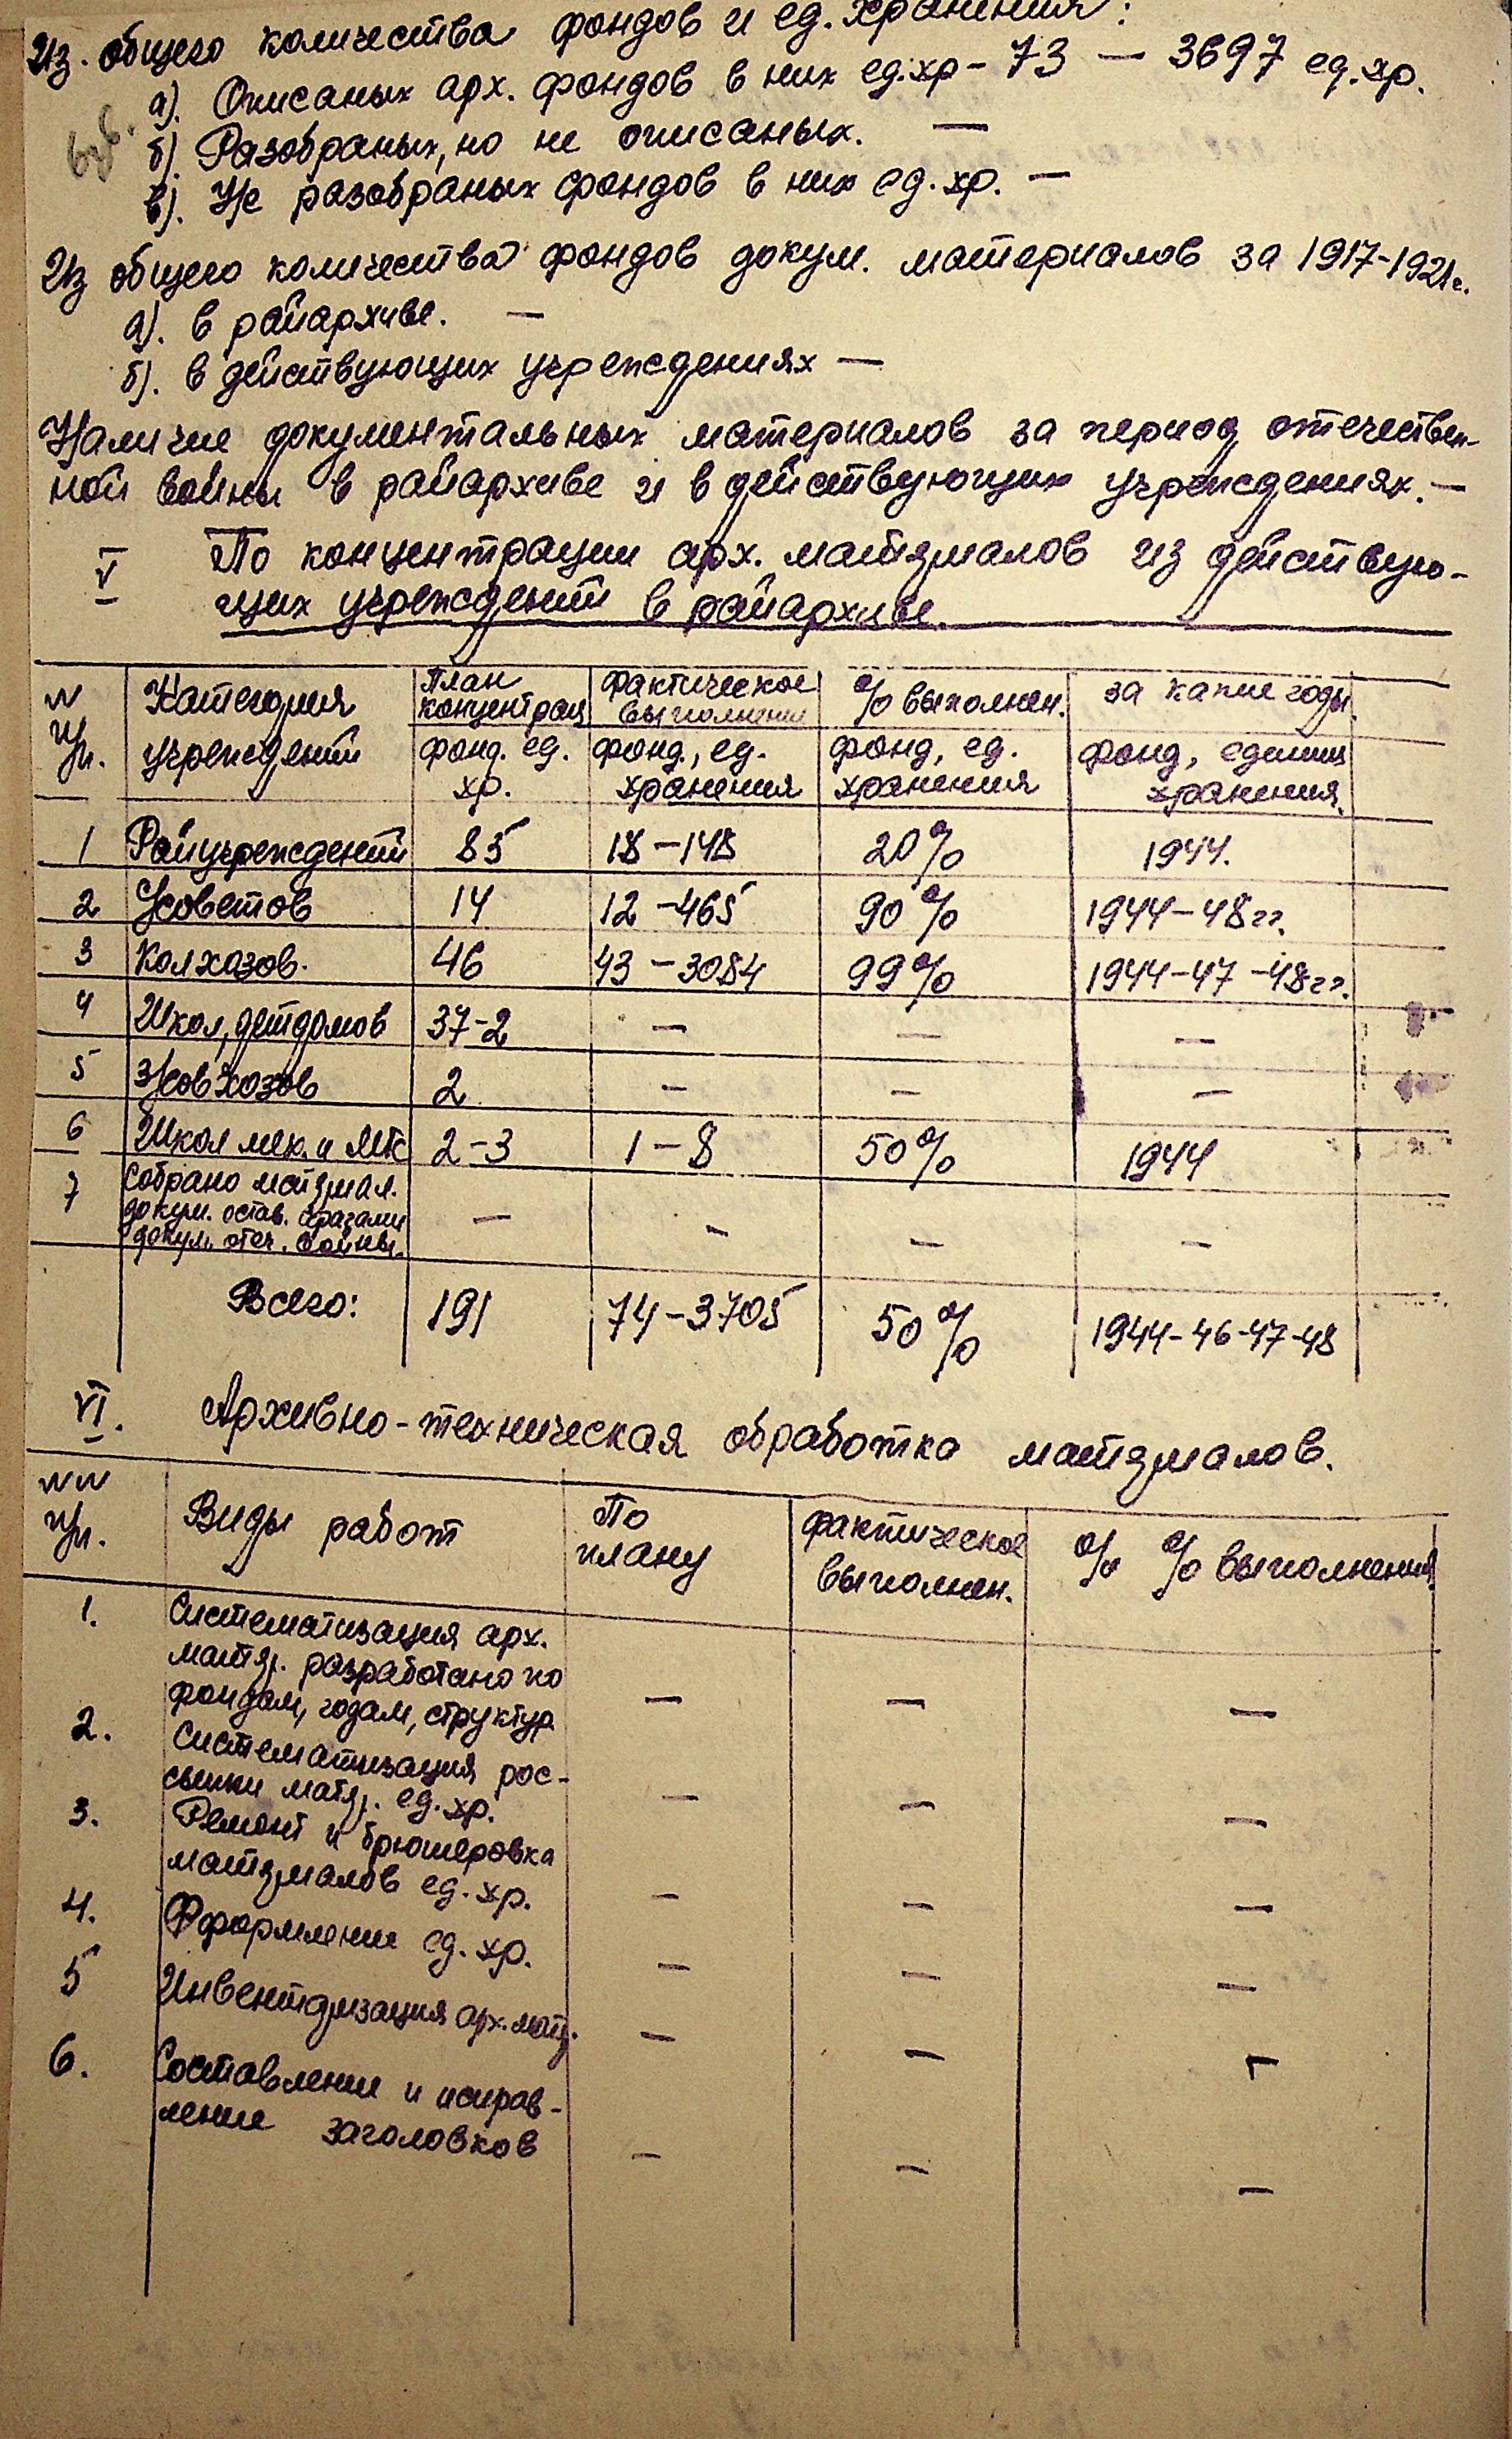 Из общего количества фондов и ед. хранения:
а). Описаных арх. фондов в них ед.хр - 73 — 3697 ед.хр.
б). Разобраных, но не описаных. —
в). Не разобраных фондов в них ед. хр. —
Из общего количества фондов докум. материалов за 1917-1921г.
а). в райархиве. —
б). в действующих учреждениях —
Наличие документальных материалов за период отечествен-
ной войны в райархиве и в действующих учреждениях. —
V По концентрации арх. материалов из действую-
щих учреждений в райархиве.
№ п/п. Категория учреждений План концентрац фактическое выполнение % выполнен. за какие годы
фонд. ед. хр. фонд., ед. хранения фонд, ед. хранения фонд, единиц хранения.
1 Райучреждений 85 18-148 20% 1944.
2 С/советов 14 12-465 90% 1944-48гг.
3 Колхозов. 46 43-3084 99% 1944-47-48гг.
4 Школ, детдомов 37-2 — — —
5 Совхозов 2 — — —
6 Школ мех. и МТС 2-3 1-8 50% 1944
7 Собрано материал.
докум. остав. врагами
докум. отеч. войны. — — — —
Всего: 191 74-3705 50% 1944-46-47-48
VI. Архивно-техническая обработка материалов.
№№ п/п. Виды работ По плану фактическое выполнен. % % выполнения
1. Систематизация арх.
матер. разработано по
фондам, годам, структур — — —
2. Систематизация рос-
сыпи матер. ед. хр. — — —
3. Ремонт и брошюровка
материалов ед. хр. — — —
4. Оформление ед. хр. — — —
5 Инвентаризация арх. матер. — — —
6. Составление и исправ-
ление заголовков — — —